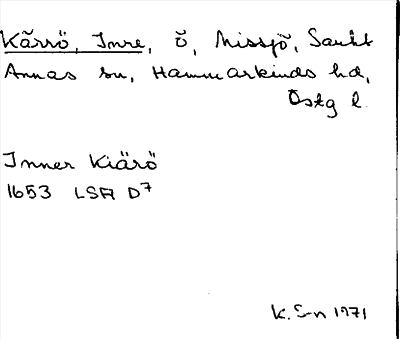 Kärrö, Inre, ö, Missjö, Sankt
Annas sn, Hammarkinds hd,
Östg l.
Inner Kiärö
1653 LSA D7
K. S-n 1971